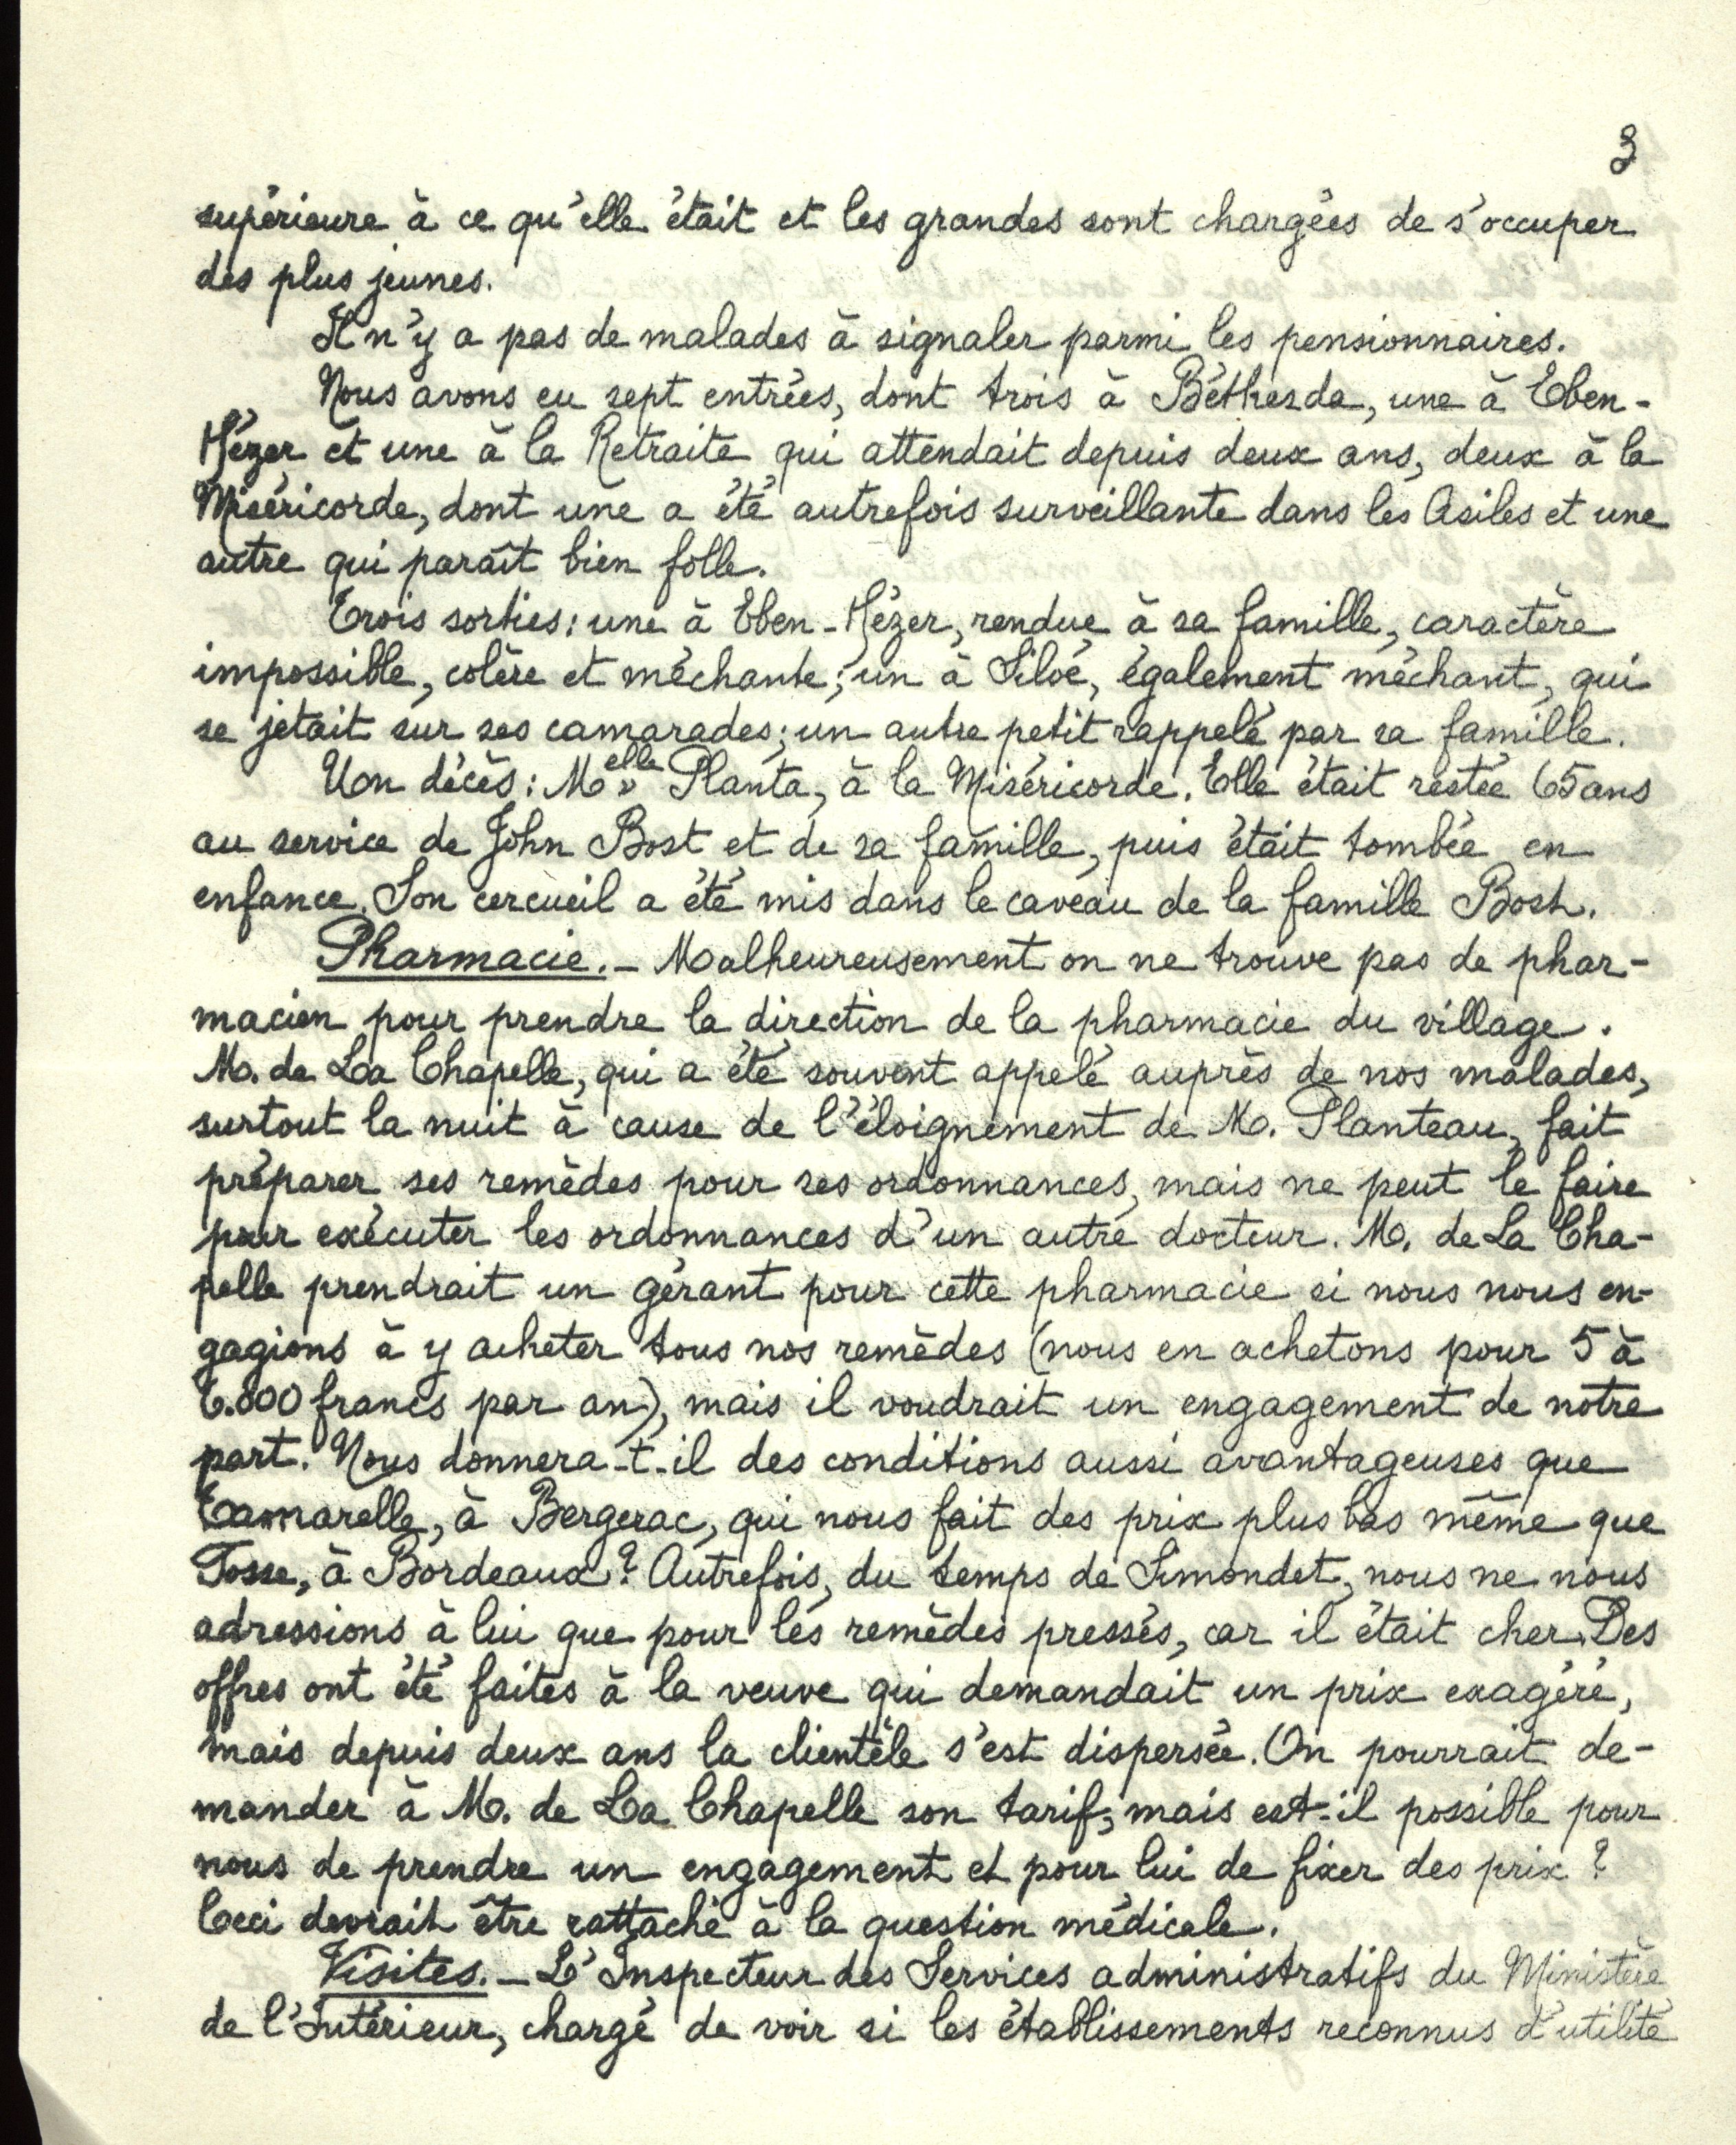 3
supérieure à ce qu'elle était et les grandes sont chargées de s'occuper
des plus jeunes.
Il n'y a pas de malades à signaler parmi les pensionnaires.
Nous avons eu sept entrées, dont trois à Béthesda, une à Eben-
Hézer et une à la Retraite qui attendait depuis deux ans, deux à la
Miséricorde, dont une a été autrefois surveillante dans les Asiles et une
autre qui paraît bien folle.
Trois sorties: une à Eben-Hézer, rendue à sa famille, caractère
impossible, colère et méchante; un à Siloé, également méchant, qui
se jetait sur ses camarades; un autre petit rappelé par sa famille.
Un décès: Melle Planta, à la Miséricorde. Elle était restée 65 ans
au service de John Bost et de sa famille, puis était tombée en
enfance. Son cercueil a été mis dans le caveau de la famille Bost.
Pharmacie. - Malheureusement on ne trouve pas de phar-
macien pour prendre la direction de la pharmacie du village.
M. de La Chapelle, qui a été souvent appelé auprès de nos malades,
surtout la nuit à cause de l'éloignement de M. Planteau, fait
préparer ses remèdes pour ses ordonnances, mais ne peut le faire
pour exécuter les ordonnances d'un autre docteur. M. de La Cha-
pelle prendrait un gérant pour cette pharmacie si nous nous en-
gagions à y acheter tous nos remèdes (nous en achetons pour 5 à
6.000 francs par an), mais il voudrait un engagement de notre
part. Nous donnera-t-il des conditions aussi avantageuses que
Tamarelle, à Bergerac, qui nous fait des prix plus bas même que
Tosse, à Bordeaux? Autrefois, du temps de Simondet, nous ne nous
adressions à lui que pour les remèdes pressés, car il était cher. Des
offres ont été faites à la veuve qui demandait un prix exagéré,
mais depuis deux ans la clientèle s'est dispersée. On pourrait de-
mander à M. de La Chapelle son tarif, mais est-il possible pour
nous de prendre un engagement et pour lui de fixer des prix?
Ceci devrait être rattaché à la question médicale.
Visites. - L'Inspecteur des Services administratifs du Ministère
de l'Intérieur, chargé de voir si les établissements reconnus d'utilité